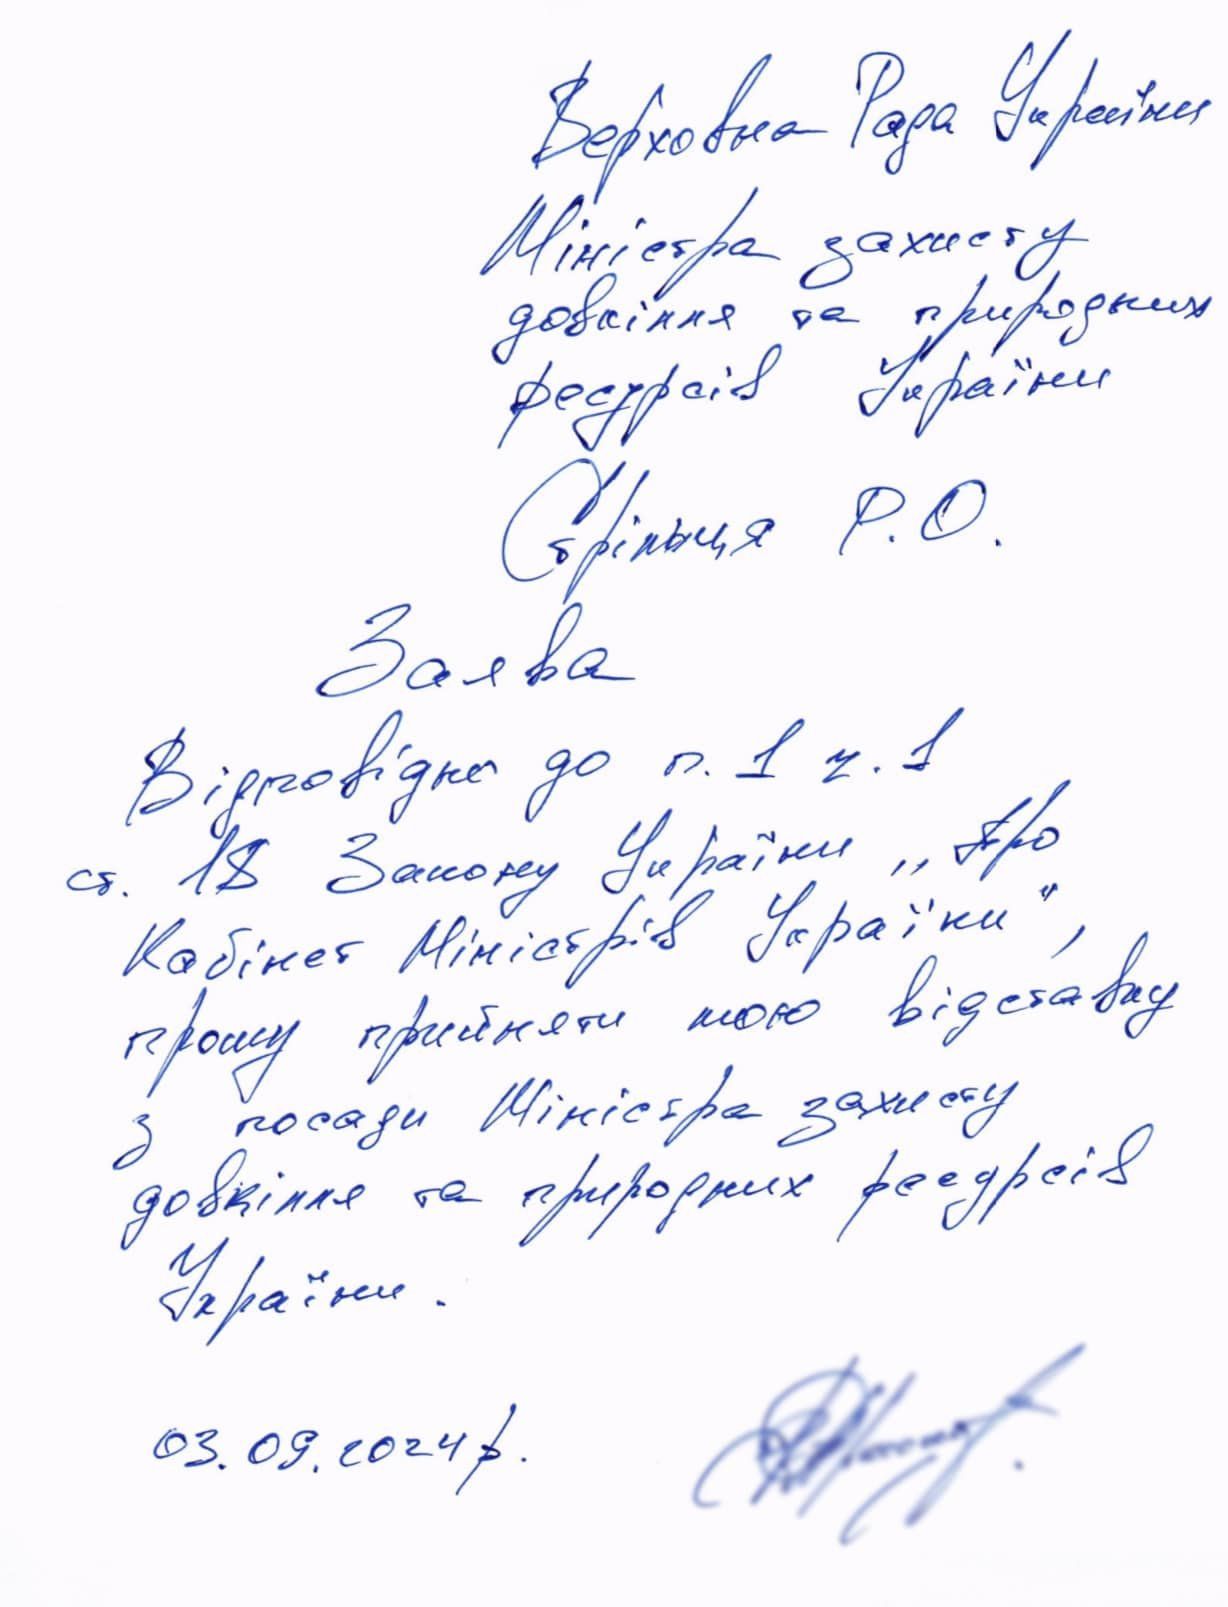 Верховна Рада України
Міністра захисту
довкілля та природних
ресурсів України
Стрільця Р.О.
Заява
Відповідно до п. 1 ч. 1
ст. 18 Закону України „Про
Кабінет Міністрів України",
прошу прийняти мою відставку
з посади Міністра захисту
довкілля та природних ресурсів
України.
03.09.2024р.